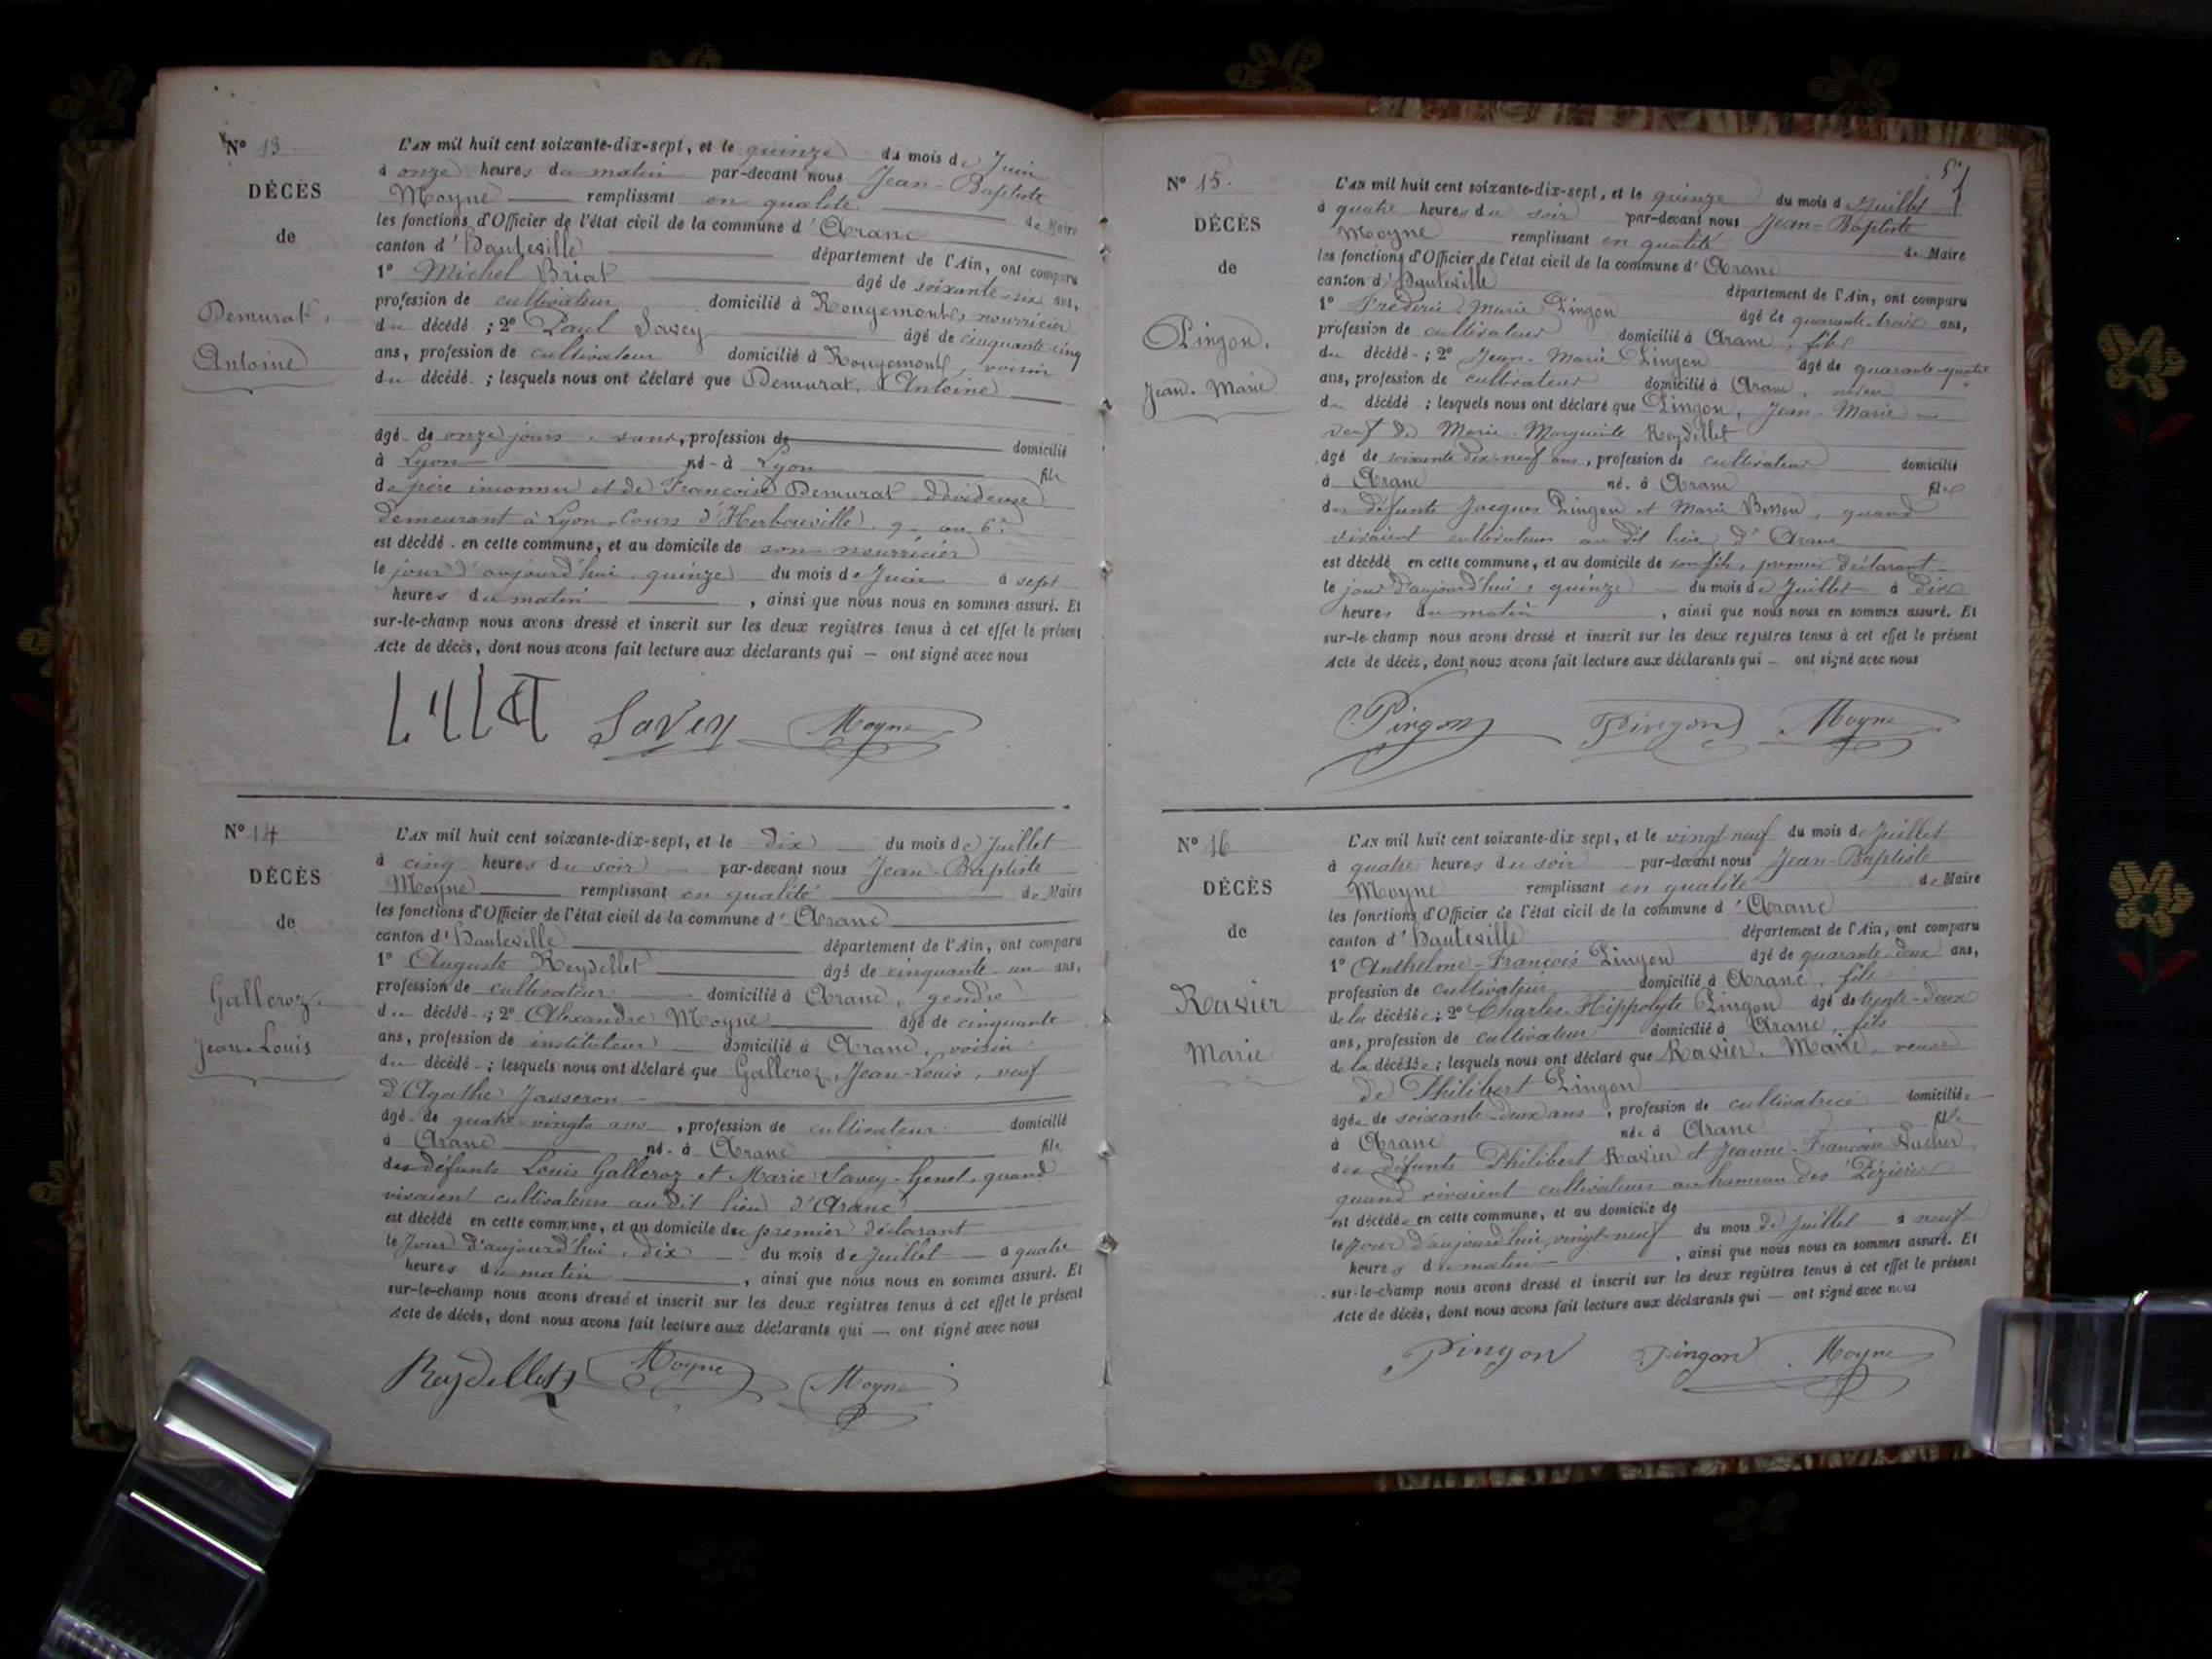 N° 13.
DÉCÈS
de
Demurat,
Antoine
L'AN mil huit cent soixante-dix-sept, et le quinze du mois de Juin
à onze heures du matin par-devant nous Jean-Baptiste
Moyne remplissant en qualité de Maire
les fonctions d'Officier de l'état civil de la commune d'Aranc
canton d'Hauteville département de l'Ain, ont comparu
1° Michel Briat âgé de soixante-six ans,
profession de cultivateur domicilié à Rougemont, nourricier
du décédé ; 2° Paul Savey âgé de cinquante-cinq
ans, profession de cultivateur domicilié à Rougemont, voisin
du décédé ; lesquels nous ont déclaré que Demurat, Antoine
âgé de onze jours, sans, profession de domicilié
à Lyon né à Lyon fils
de père inconnu et de Françoise Demurat dévideuse
demeurant à Lyon, Cours d'Herbouville, 9 au 6e
est décédé en cette commune, et au domicile de son nourricier
le jour d'aujourd'hui, quinze du mois de Juin à sept
heures du matin, ainsi que nous nous en sommes assuré. Et
sur-le-champ nous avons dressé et inscrit sur les deux registres tenus à cet effet le présent
Acte de décès, dont nous avons fait lecture aux déclarants qui — ont signé avec nous
Savey Moyne
N° 14
DÉCÈS
de
Galleroz,
Jean-Louis
L'AN mil huit cent soixante-dix-sept, et le dix du mois de Juillet
à cinq heures du soir par-devant nous Jean-Baptiste
Moyne remplissant en qualité de Maire
les fonctions d'Officier de l'état civil de la commune d'Aranc
canton d'Hauteville département de l'Ain, ont comparu
1° Auguste Reydellet âgé de cinquante-un ans,
profession de cultivateur domicilié à Aranc, gendre
du décédé ; 2° Alexandre Moyne âgé de cinquante
ans, profession de instituteur domicilié à Aranc, voisin
du décédé ; lesquels nous ont déclaré que Galleroz, Jean-Louis, veuf
d'Agathe Jasseron
âgé de quatre-vingts ans, profession de cultivateur domicilié
à Aranc né à Aranc fils
des défunts Louis Galleroz et Marie Savey-Genet, quand
vivaient cultivateurs au dit lieu d'Aranc
est décédé en cette commune, et au domicile du premier déclarant
le Jour d'aujourd'hui, dix du mois de Juillet à quatre
heures du matin, ainsi que nous nous en sommes assuré. Et
sur-le-champ nous avons dressé et inscrit sur les deux registres tenus à cet effet le présent
Acte de décès, dont nous avons fait lecture aux déclarants qui — ont signé avec nous
Reydellet Moyne Moyne
51
N° 15.
DÉCÈS
de
Pingon,
Jean-Marie
L'AN mil huit cent soixante-dix-sept, et le quinze du mois de Juillet
à quatre heures du soir par-devant nous Jean-Baptiste
Moyne remplissant en qualité de Maire
les fonctions d'Officier de l'état civil de la commune d'Aranc
canton d'Hauteville département de l'Ain, ont comparu
1° Frédéric-Marie Pingon âgé de quarante-trois ans,
profession de cultivateur domicilié à Aranc, fils
du décédé ; 2° Jean-Marie Pingon âgé de quarante-quatre
ans, profession de cultivateur domicilié à Aranc, neveu
du décédé ; lesquels nous ont déclaré que Pingon, Jean-Marie
veuf de Marie-Marguerite Reydellet
âgé de soixante-dix-neuf ans, profession de cultivateur domicilié
à Aranc né à Aranc fils
des défunts Jacques Pingon et Marie, quand
vivaient cultivateurs au dit lieu d'Aranc
est décédé en cette commune, et au domicile de son fils, premier déclarant
le jour d'aujourd'hui, quinze du mois de Juillet à dix
heures du matin, ainsi que nous nous en sommes assuré. Et
sur-le-champ nous avons dressé et inscrit sur les deux registres tenus à cet effet le présent
Acte de décès, dont nous avons fait lecture aux déclarants qui — ont signé avec nous
Pingon Pingon Moyne
N° 16
DÉCÈS
de
Ravier
Marie
L'AN mil huit cent soixante-dix sept, et le vingt-neuf du mois de Juillet
à quatre heures du soir par-devant nous Jean-Baptiste
Moyne remplissant en qualité de Maire
les fonctions d'Officier de l'état civil de la commune d'Aranc
canton d'Hauteville département de l'Ain, ont comparu
1° Anthelme-François Pingon âgé de quarante-deux ans,
profession de cultivateur domicilié à Aranc, fils
de la décédée ; 2° Charles-Hippolyte Pingon âgé de trente-deux
ans, profession de cultivateur domicilié à Aranc, fils
de la décédée ; lesquels nous ont déclaré que Ravier, Marie, veuve
de Philibert Pingon
âgée de soixante-deux ans, profession de cultivatrice domiciliée
à Aranc née à Aranc fille
des défunts Philibert Ravier et Jeanne-Françoise
quand vivaient cultivateurs au hameau des Pézières
est décédée en cette commune, et au domicile de
le Jour d'aujourd'hui, vingt-neuf du mois de Juillet à neuf
heures du matin, ainsi que nous nous en sommes assuré. Et
sur-le-champ nous avons dressé et inscrit sur les deux registres tenus à cet effet le présent
Acte de décès, dont nous avons fait lecture aux déclarants qui — ont signé avec nous
Pingon Pingon Moyne